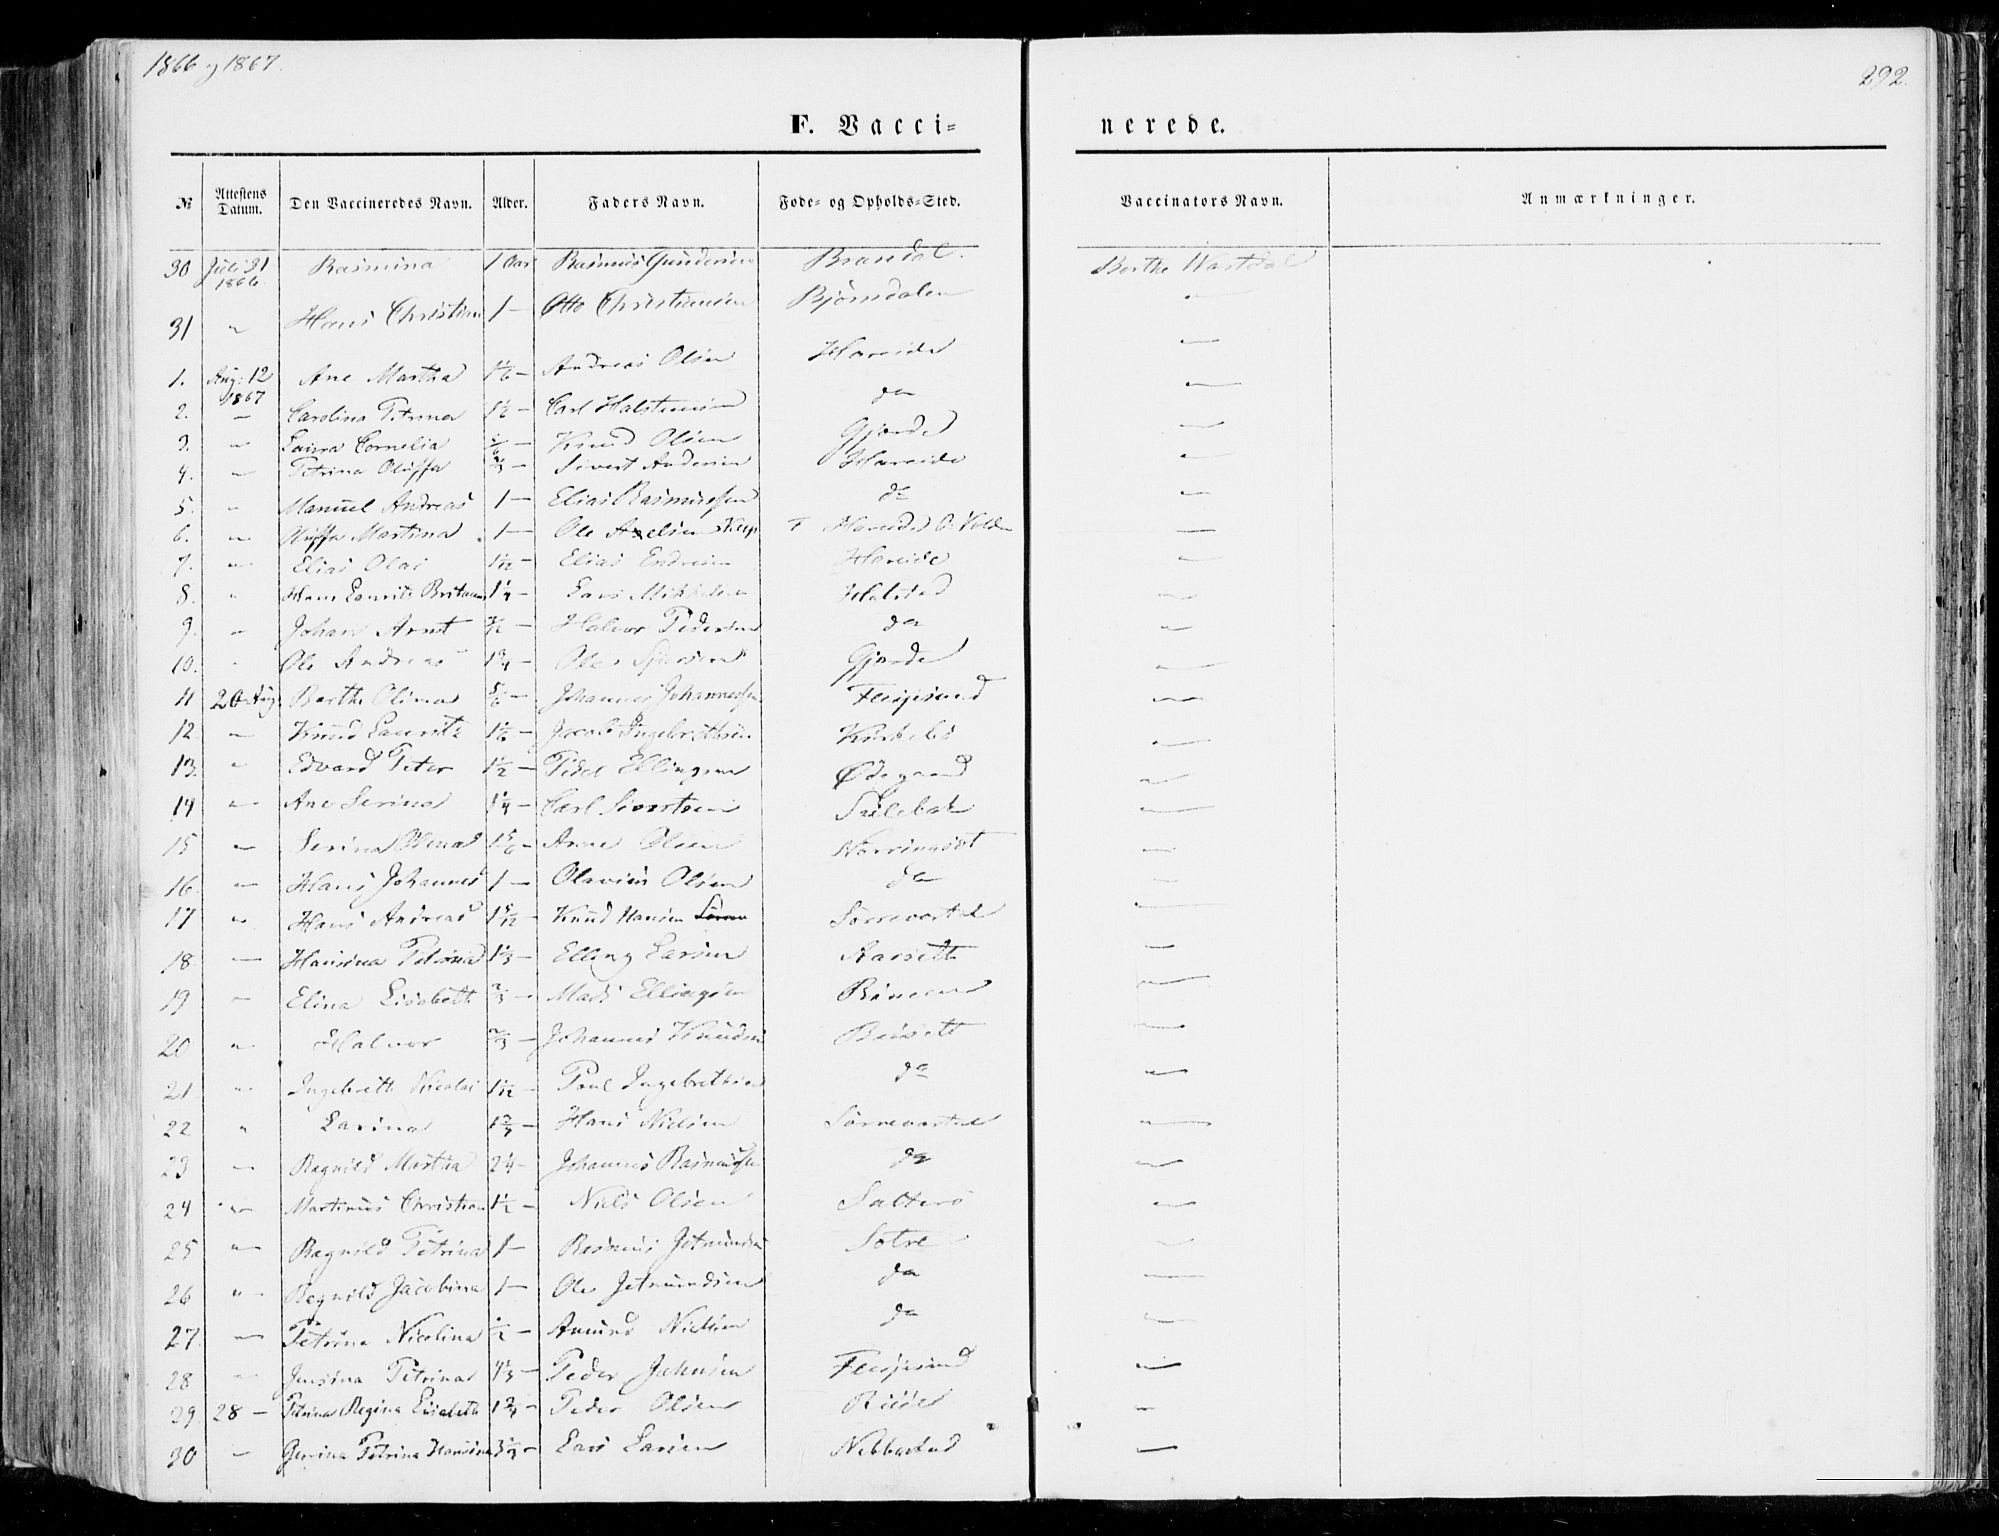 1866 og 1867.
292.
F. Vacci=
nerede.
№ Attestens Datum. Den Vaccineredes Navn. Alder. Faders Navn. Føde- og Opholds-Sted. Vaccinators Navn. Anmærkninger.
30 Juli 31 1866. Rasmina 1 Aar Rasmus Gundersen Brandal. Berthe Wartdal
31 " Hans Christian 1 — Otto Christiansen Bjørndalen —
1. Aug: 12 1867 Ane Martha 1 1/6 — Andreas Olsen Hareide —
2. — Carolina Petrina 1 1/2 — Carl Halstensen do —
3. " Laura Cornelia — Knud Olsen Gjerde —
4. " Petrina Oluffa 2/3 — Sivert Andersen Hareide —
5. " Manuel Andreas 1 — Elias Rasmussen do —
6. " Oluffa Martina 1 — Ole Axelsen Hareide —
7. " Elias Olai 1 1/12 — Elias Endresen Hareide —
8. " Hans Laurits 1 1/4 — Lars Mikkelsen Halstad —
9. " Johan Arnt — Halvor Pedersen do —
10. " Ole Andreas 1 3/4 — Ole Gjerde —
11 26 Aug. Berthe Olina 5/6 — Johannes Johannessen Flesjesund —
12. " Knud Laurits 1 1/6 — Jacob Ingebrethsen Kirkebø —
13. " Edvard Peter 1 1/2 — Peder Ellingsen Ødegaard —
14 " Ane Serina 1 1/4 — Carl Sivertsen —
15 " Serina Olina 1 5/6 — Arne Olsen —
16. " Hans Johannes 1 — Olavius Olsen do —
17 " Hans Andreas 1 5/12 — Knud Hansen Sørrevartdal —
18. " Hansina Petrina 1 1/3 — Elling Larsen Aarsett —
19 " Elina Lisabeth 2/3 — Mads Ellingsen —
20 " Halvor 2/3 — Johannes Knudsen —
21 " Ingebrith Nicolai 1 1/12 — Poul Ingebrethsen do —
22 " Larina — Hans Nielsen Sørrevartdal —
23 " Ragnild Martha 2 1/4 — Johannes Rasmussen do —
24 " Martinus Christian 1 1/2 — Niels Olsen Saltero —
25 " Ragnild Petrina 1 — Rasmus Jetmundsen Sotre —
26 " Ragnild Jacobina 1 — Ole Jetmundsen do —
27. " Petrina Nicolina 1/2 — Amund Nielsen do —
28 " Jensina Petrina — Peder Johnsen Flesjesund —
29. 28 — Petrina Regina Elisabeth 1 3/4 — Peder Olsen —
30 " Petrina Hansina — Lars Larsen Nebbestad —